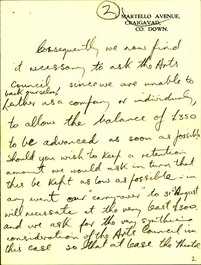 2
MARTELLO AVENUE,
CRAIGAVAD,
CO. DOWN.
Consequently we now find
it necessary to ask the Arts
Council, since we are unable to
back ourselves
further as a company or individually,
to allow the balance of £350
to be advanced as soon as possible
should you wish to keep a retention
amount we would ask in turn that
this be kept as low as possible - in
any event our "carryover" to 31st August
will necessitate at the very least £300.
and we ask for the very
consideration of the Arts Council in
this case so that at least the Theatre
2